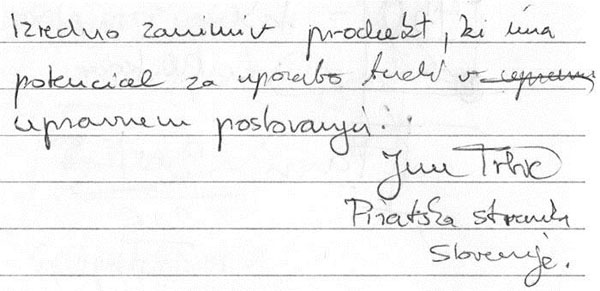 Izredno zanimiv produkt, ki ima
potencial za uporabo tudi v
upravnem poslovanju.
Piratska stranka
Slovenije.